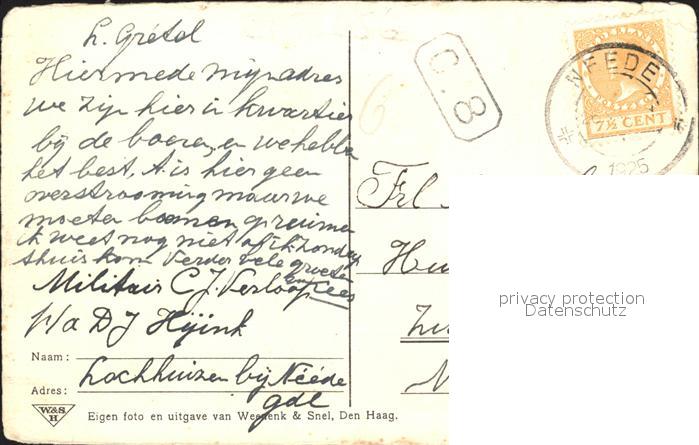 L. Grétel
Hiermede mijn adres
we zijn hier in kwartier
bij de boeren, en we hebbe
het best. 't is hier geen
overstrooming maar we
moeten boomen opruimen
ik weet nog niet of ik zondag
thuis kom Verder vele groeten
van Cees
Militair C. J. Verloop
p/a D J Hijink
Naam:
Lochhuizen bij Nééde
Adres:
gdl
W&S
H
Eigen foto en uitgave van Weenenk & Snel, Den Haag.
G. 8
6
NEDERLAND
7½ CENT
NEEDE
1925
Frl
Hu
Zu
N
privacy protection
Datenschutz